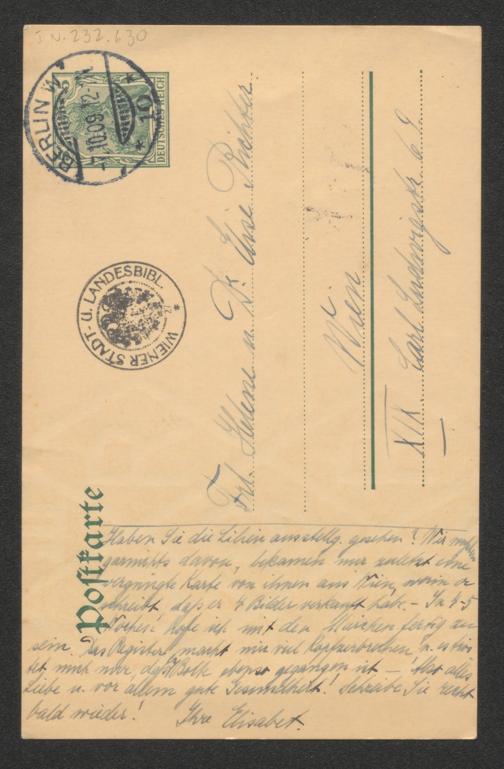 I.N. 232.630
BERLIN W.
10.09. 12-1N.
* 10 *
DEUTSCHES REICH
WIENER STADT- U. LANDESBIBL. *
Postkarte
Frl. Helene u. Dr. Elise Richter.
Wien
XIX Carl Ludwigstr. 69
Haben Sie die Lilien ausstellg. gesehen? Wir
garnichts davon, bekamen nur zuletzt eine
vergnügte Karte von ihnen aus Wien, worin er
schreibt, daß er 4 Bilder verkauft habe. – In 4-5
Wochen hoffe ich mit den Märchen fertig zu
sein. Das Register macht mir viel Kopfzerbrechen u.
mich nur, daß Bolte ebenso gegangen ist –! Also alles
Liebe u. vor allem gute Gesundheit! Schreiben Sie recht
bald wieder! Ihre Elisabet.